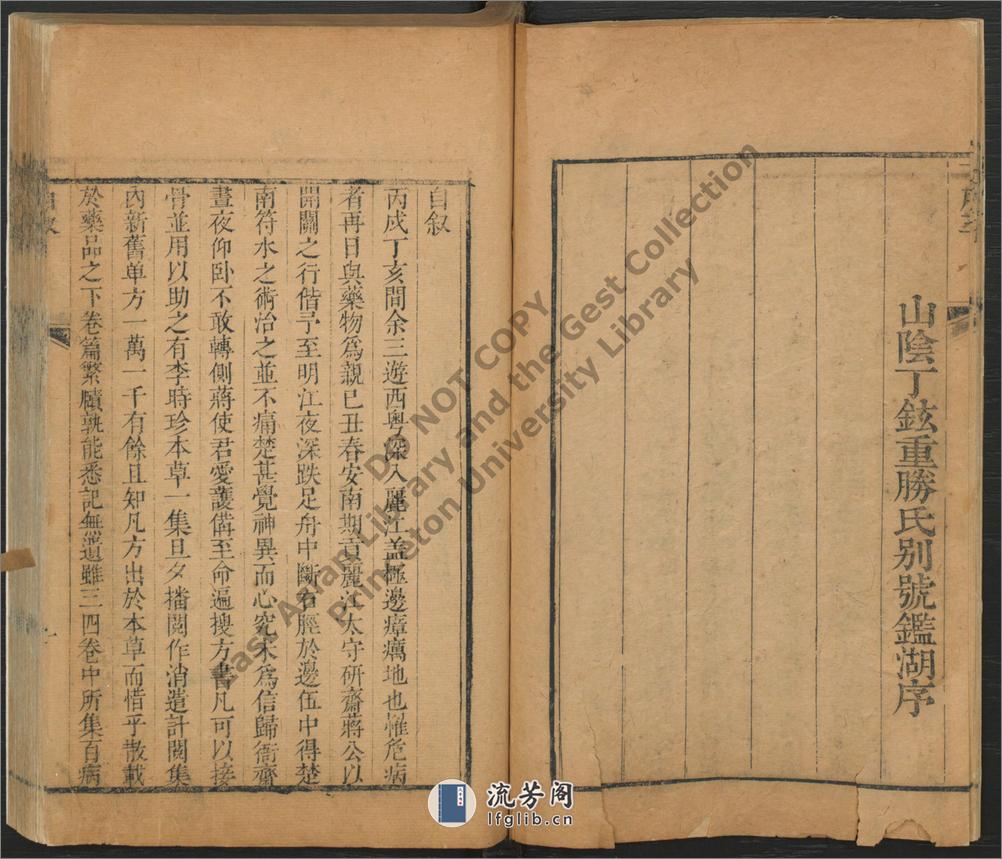 山陰丁鉉重勝氏別號鑑湖序
自叙
丙戌丁亥間余三遊西粤深入麗江盖極邊瘴癘地也惟危病
者再日與藥物爲親已丑春安南期貢麗江太守研齋蔣公以
開關之行偕予至明江夜深跌足舟中斷右脛於邊伍中得楚
南符水之術治之並不痛楚甚覺神異而心究未爲信歸衙齋
晝夜仰卧不敢轉側蔣使君愛護僃至命遍搜方書凡可以接
骨並用以助之有李時珍本草一集旦夕播閱作消遣計閱集
內新舊单方一萬一千有餘且知凡方出於本草而惜乎散載
於藥品之下卷篇繁牘孰能悉記無遺雖三四卷中所集百病
自叙
East Asian Library and the Gest Collection
Princeton University Library
DO NOT COPY
流芳阁
lfglib.cn